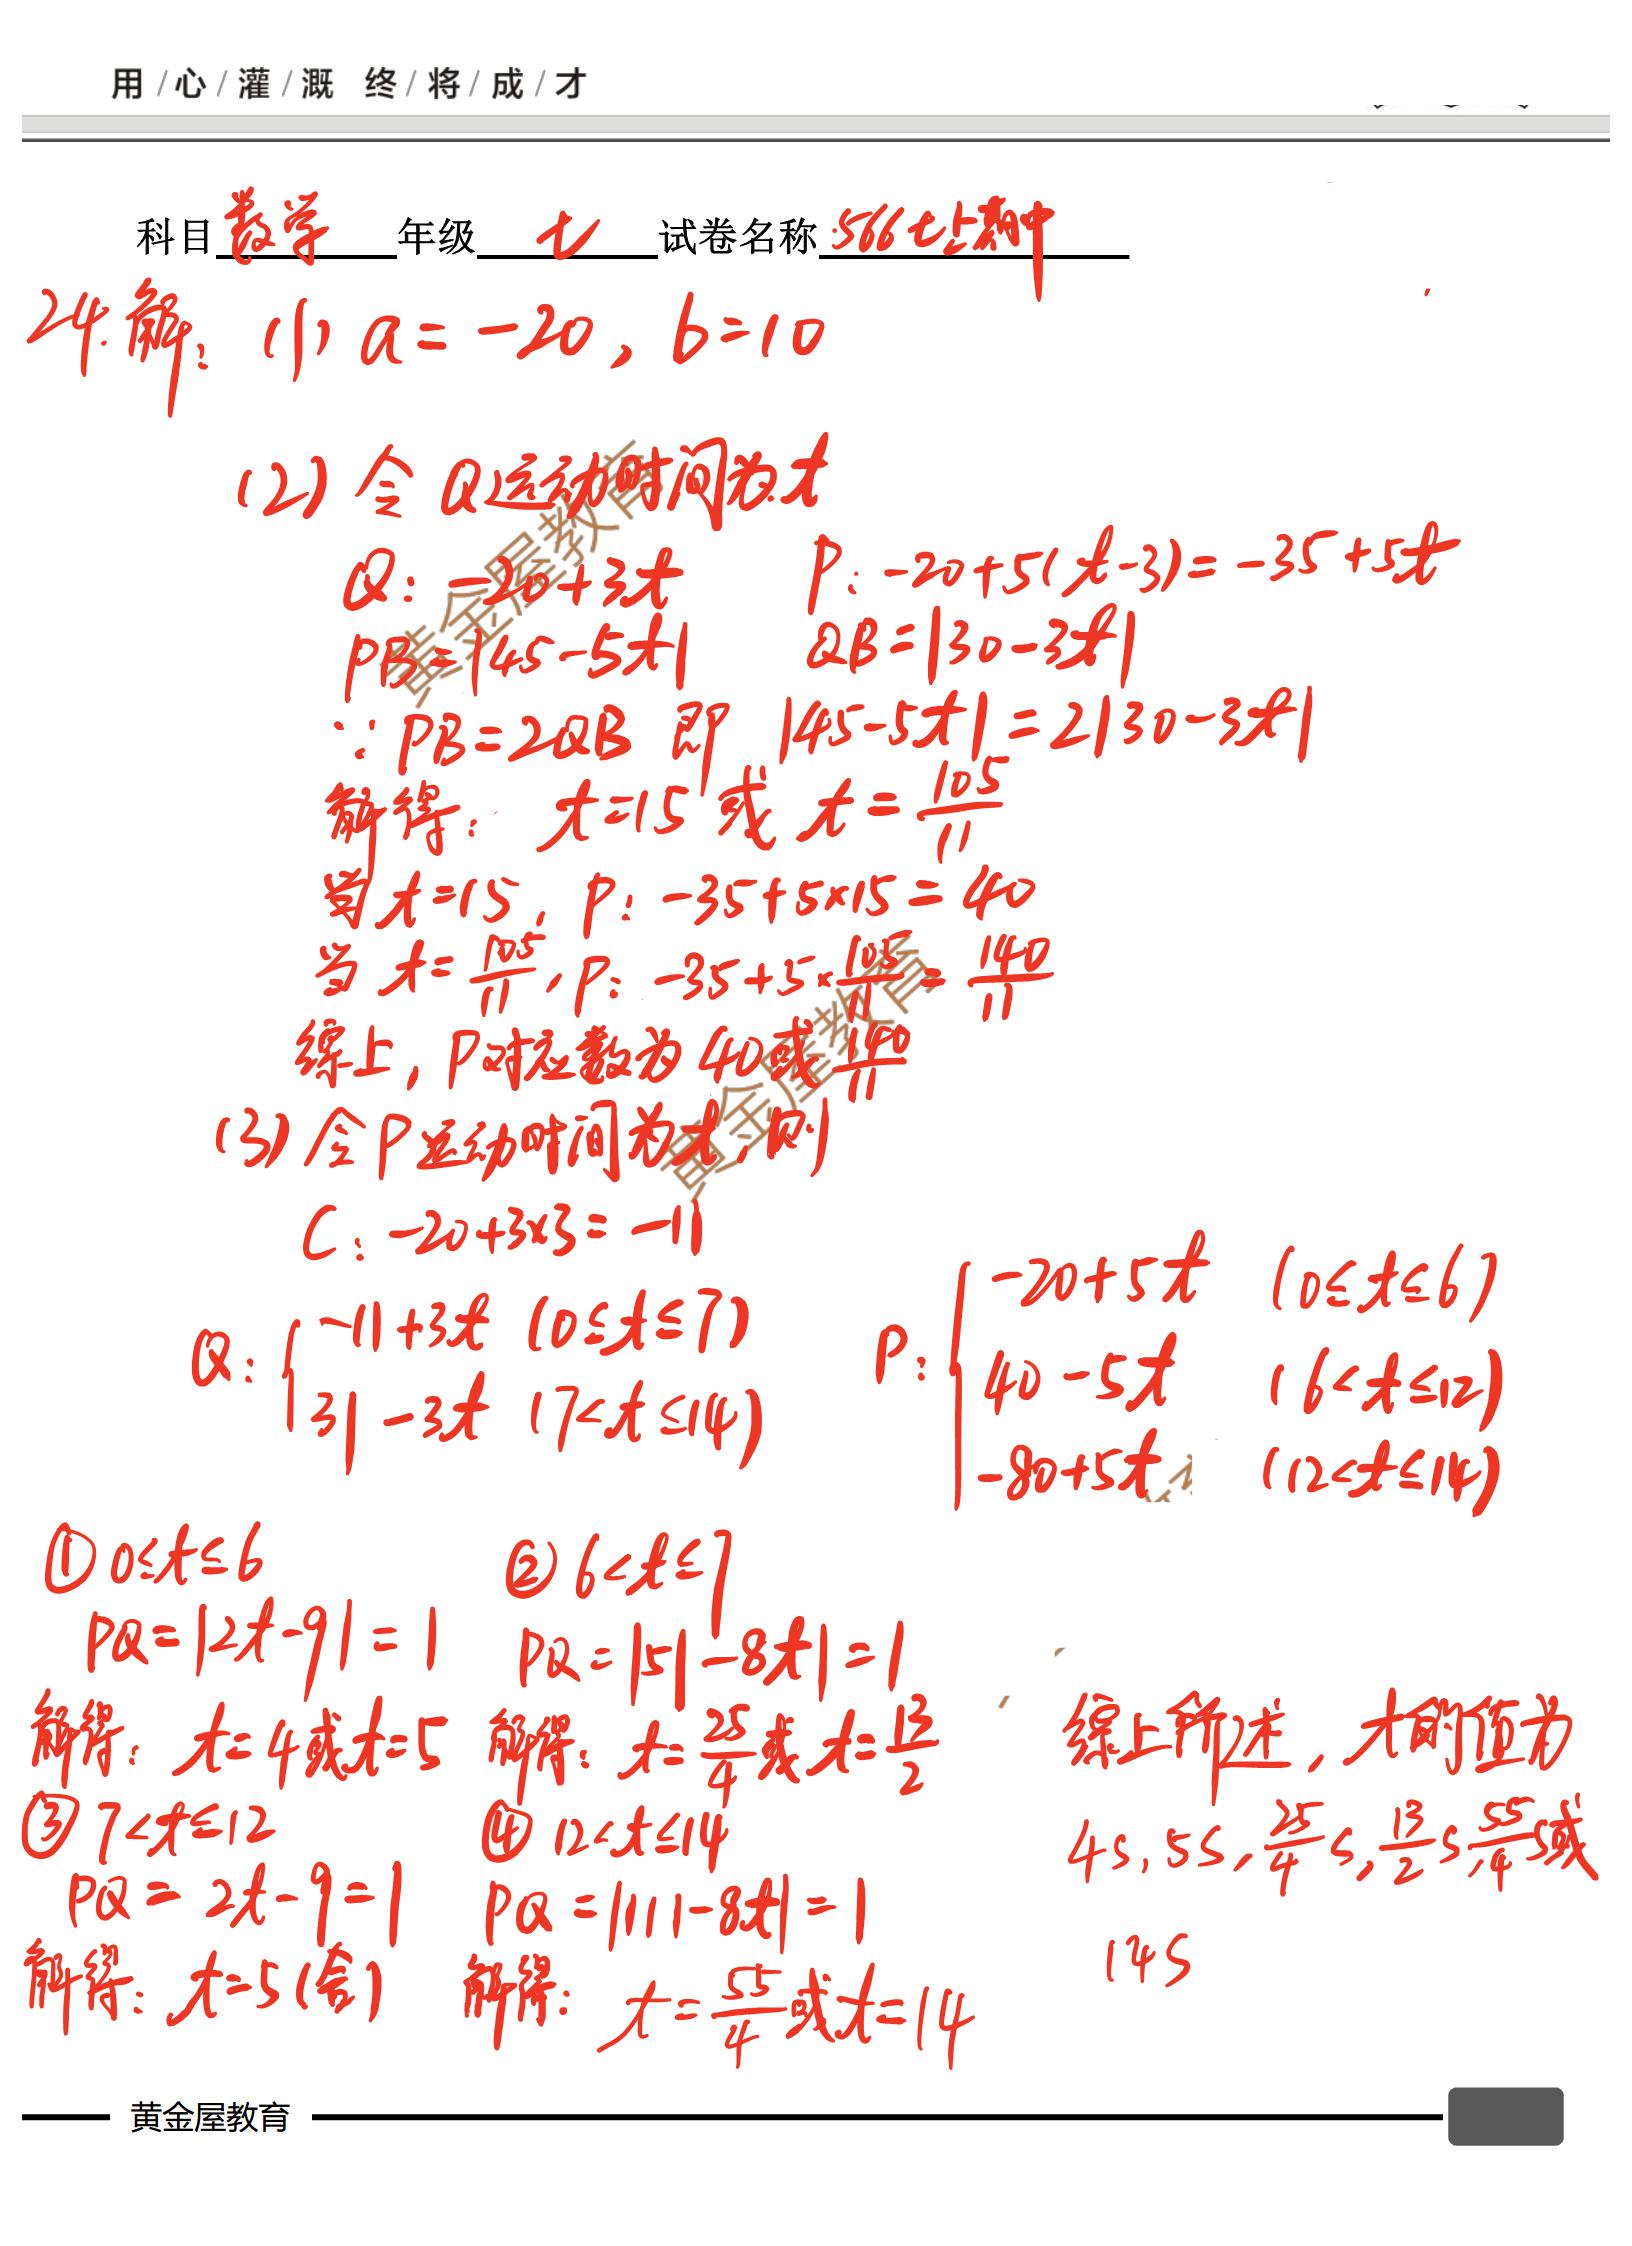 用/心/灌/溉 终/将/成/才
科目 数学 年级 七 试卷名称 566七上期中
24.解：(1) a=-20，b=10
(2) 令Q运动时间为t
Q：-20+3t P：-20+5(t-3)=-35+5t
PB=|45-5t| QB=|30-3t|
∵PB=2QB 即 |45-5t|=2|30-3t|
解得：t=15或 t=105/11
当t=15，P：-35+5×15=40
当 t=105/11，P：-35+5×105/11=140/11
综上，P对应数为40或140/11
(3) 令P运动时间为t，则
C：-20+3×3=-11
Q：{ -11+3t (0≤t≤7)
31-3t (7<t≤14)
P：{ -20+5t (0≤t≤6)
40-5t (6<t≤12)
-80+5t (12<t≤14)
① 0≤t≤6
PQ=|2t-9|=1
解得：t=4或t=5
② 6<t≤7
PQ=|51-8t|=1
解得：t=25/4或t=13/2
③ 7<t≤12
PQ=2t-9=1
解得：t=5(舍)
④ 12<t≤14
PQ=|111-8t|=1
解得：t=55/4或t=14
综上所述，t的值为
4s，5s，25/4s，13/2s，55/4s或
14s
黄金屋教育
黄金屋教育
黄金屋教育